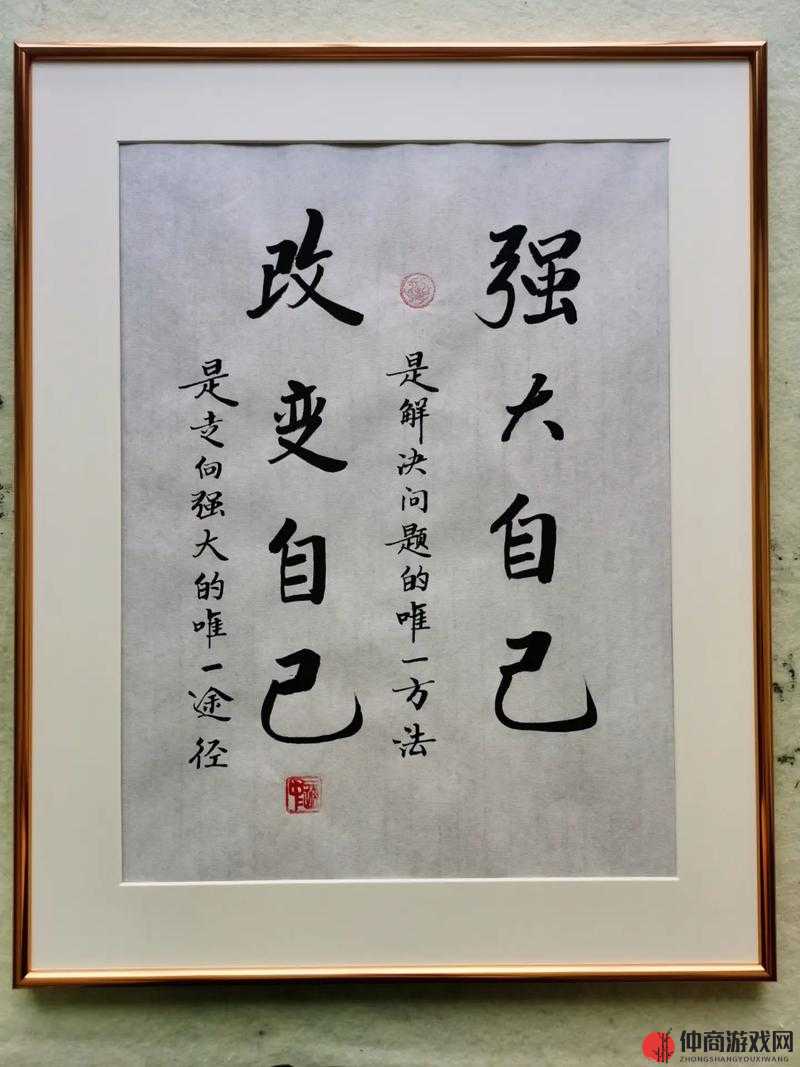 强大自己
是解决问题的唯一方法
改变自己
是走向强大的唯一途径
仲商游戏网
ZHONGSHANGYOUXIWANG